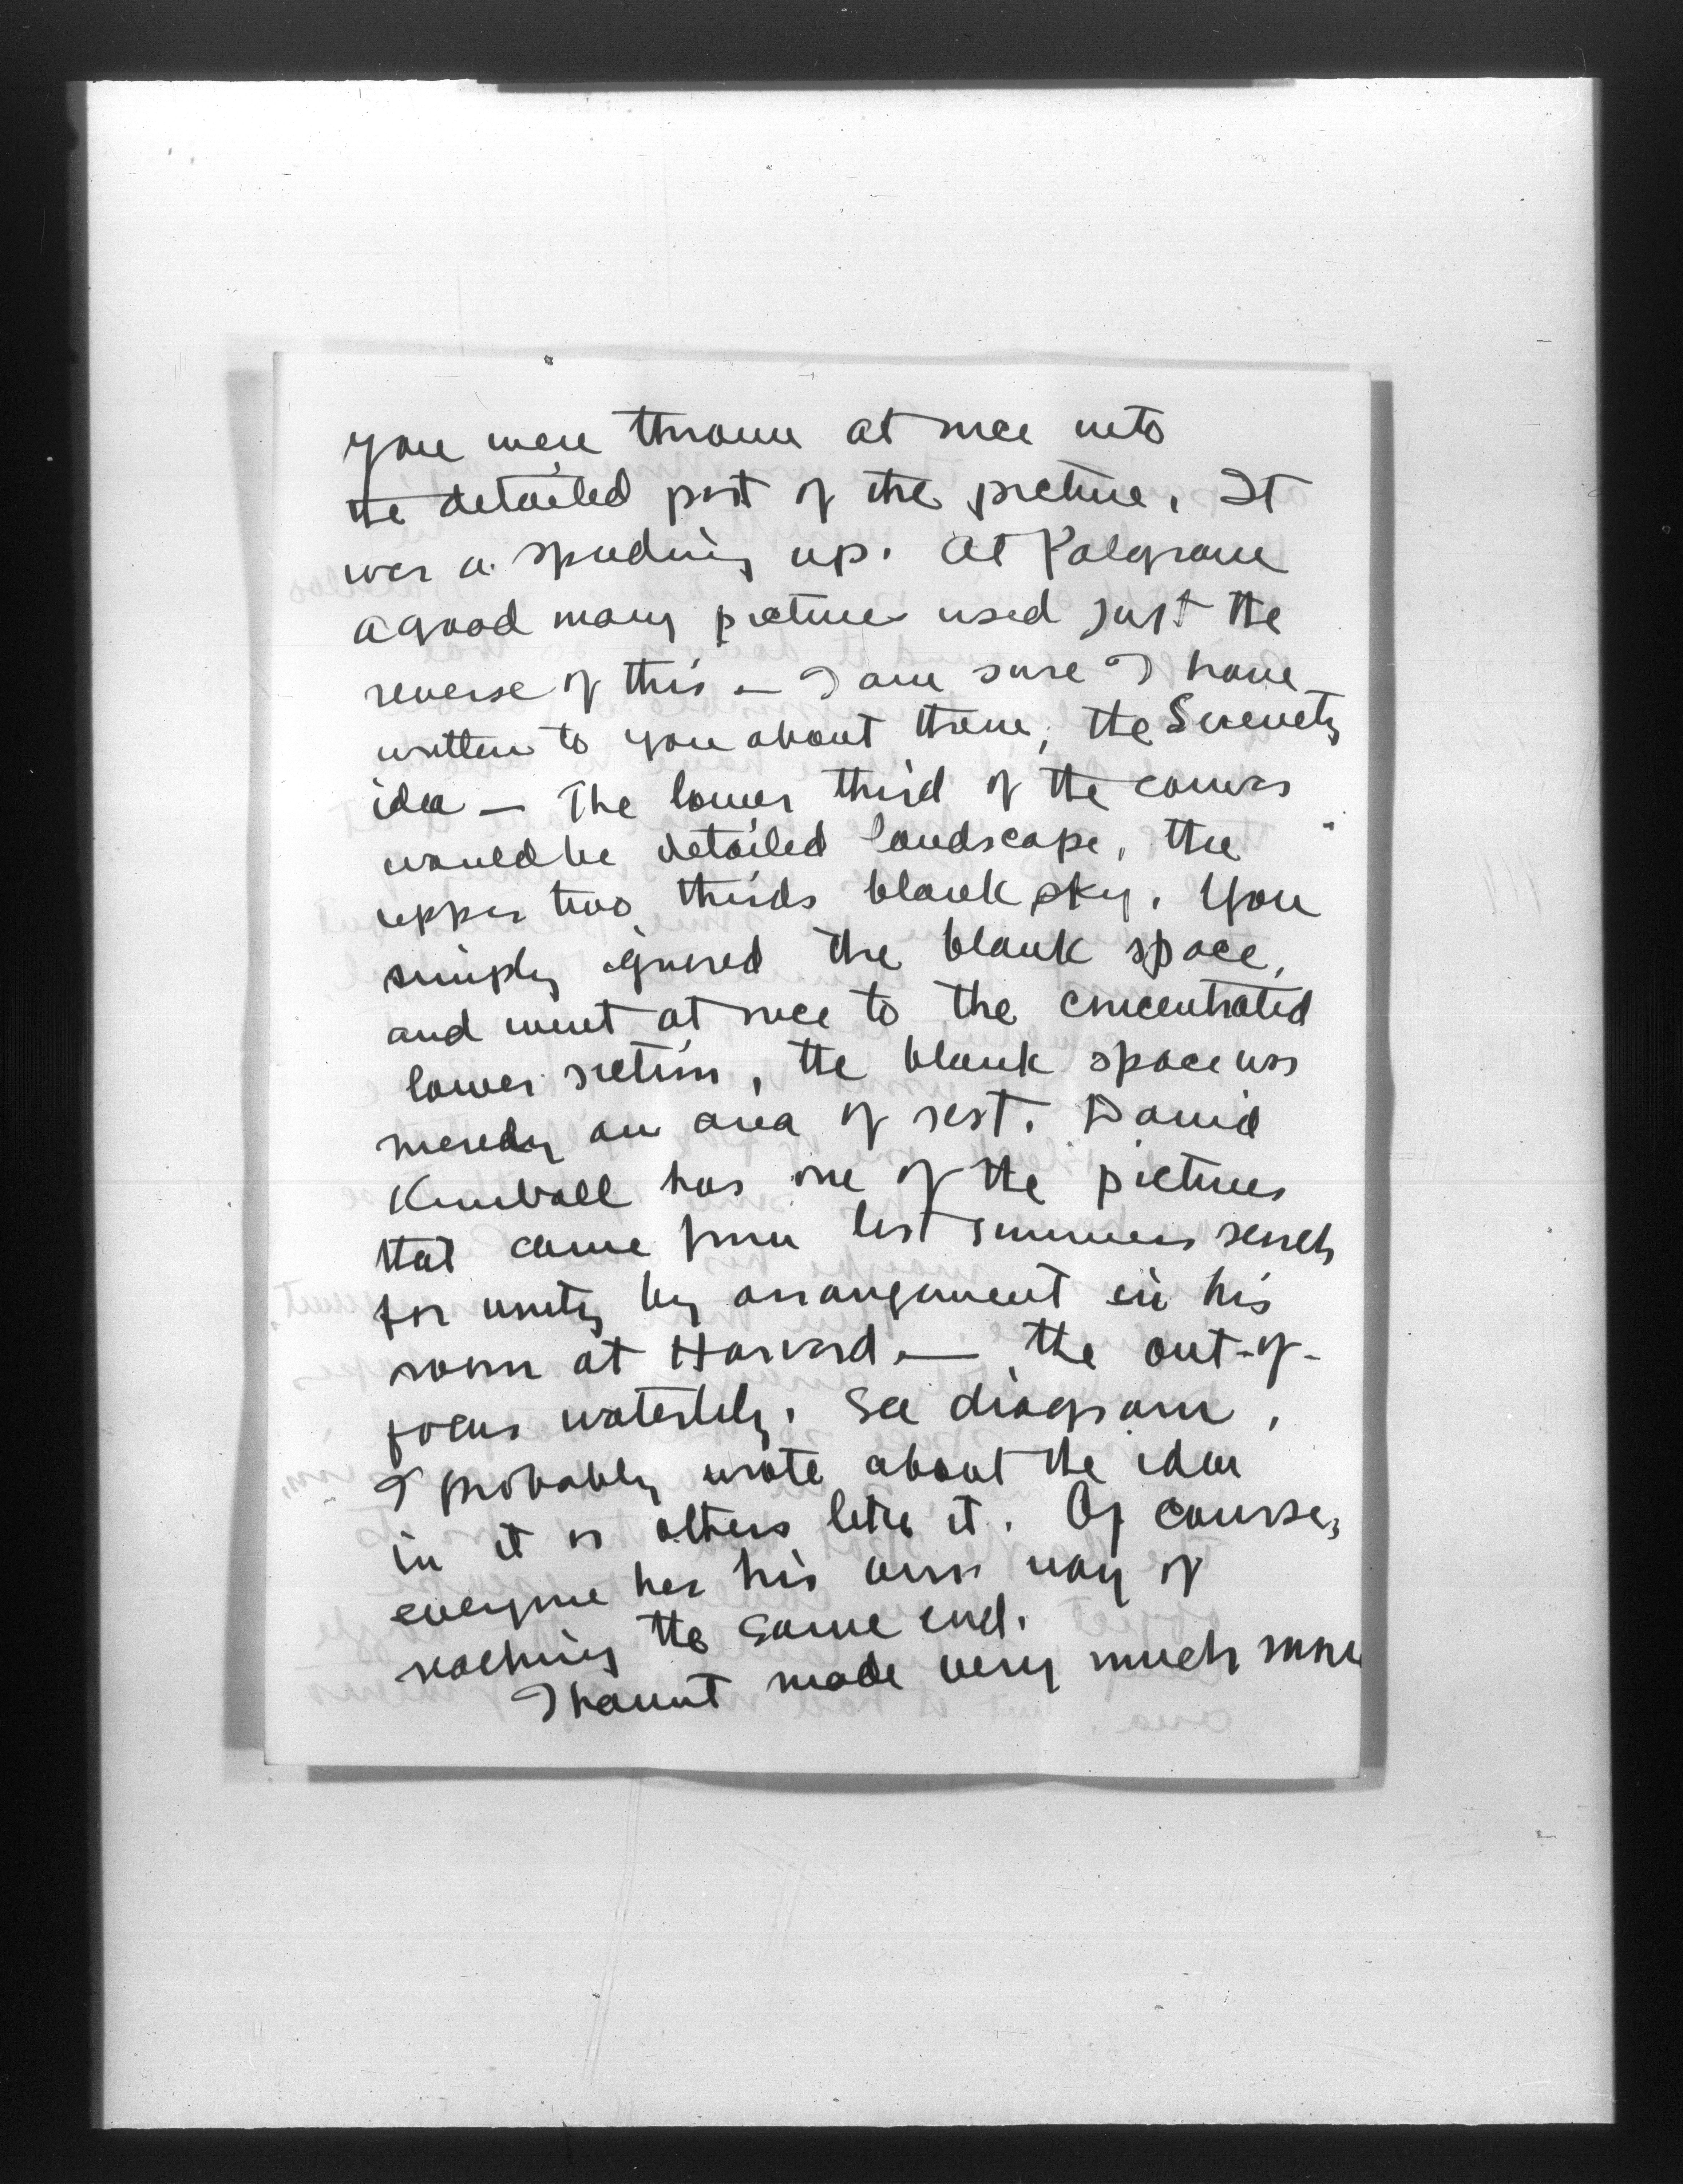 you were thrown at once into
the detailed part of the picture. It
was a speeding up. At Palgrave
a good many pictures used just the
reverse of this — I am sure I have
written to you about them, the Serenity
idea — The lower third of the canvas
would be detailed landscape, the
upper two thirds blank sky. You
simply ignored the blank space,
and went at once to the concentrated
lower section, the blank space was
merely an area of rest. David
Kimball has one of the pictures
that came from last summers search
for unity by arrangement in his
room at Harvard — the out-of-
focus waterlily. See diagram,
I probably wrote about the idea
in it or others like it. Of course,
everyone has his own way of
reaching the same end.
I havent made very much more